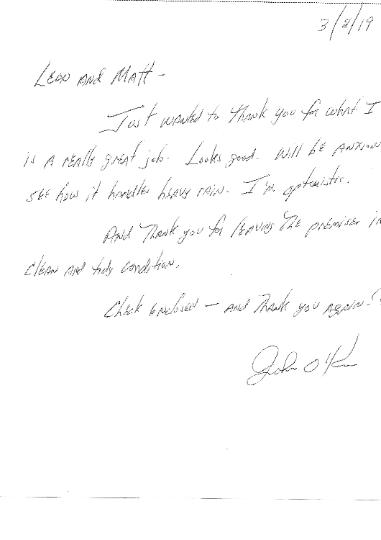 3/2/19
Leon and Matt -
Just wanted to thank you for what I
is a really great job. Looks good. Will be anxiou
see how it handles heavy rain. I'm optimistic.
And thank you for leaving the premises in
clean and tidy condition.
Check enclosed — and thank you again!
John O'K